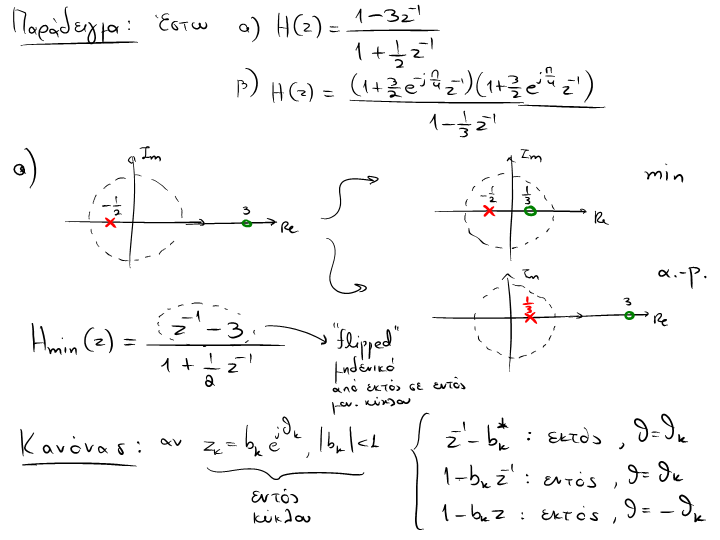 Παράδειγμα: Έστω α) H(z) = (1 - 3z⁻¹) / (1 + ½ z⁻¹)
β) H(z) = (1 + 3/2 e^{-jπ/4} z⁻¹)(1 + 3/2 e^{jπ/4} z⁻¹) / (1 - 1/3 z⁻¹)
α)
Im
-1/2
3
Re
Im
-1/2
1/3
Re
min
Im
1/3
3
Re
α.-p.
H_min(z) = (z⁻¹ - 3) / (1 + ½ z⁻¹)
"flipped"
μηδενικό
από εκτός σε εντός
μον. κύκλου
Κανόνας: αν z_k = b_k e^{jϑ_k}, |b_k| < 1
εντός
κύκλου
z⁻¹ - b_k^* : εκτός, ϑ = ϑ_k
1 - b_k z⁻¹ : εντός, ϑ = ϑ_k
1 - b_k z : εκτός, ϑ = -ϑ_k